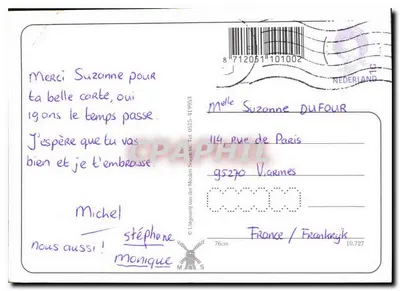 8 712051 101002
NEDERLAND
Merci Suzanne pour
ta belle carte, oui
19 ans le temps passe.
J'espère que tu vas
bien et je t'embrasse.
Michel
nous aussi !
stéphane
Monique
Melle Suzanne DUFOUR
114 rue de Paris
95270 Viarmes
France / Frankryk
76cm
10.727
M S
CPAPHIL